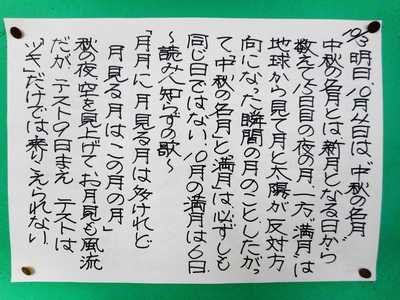 10/3 明日、10月4日は、"中秋の名月"
中秋の名月とは新月となる日から
数えて15日目の夜の月。一方、"満月"は
地球から見て月と太陽が反対方
向になった瞬間の月のこと。したがっ
て"中秋の名月"と"満月"は必ずしも
同じ日ではない。10月の満月は6日。
〜読み人知らずの歌〜
「月月に月見る月は多けれど
月見る月はこの月の月」
秋の夜空を見上げてお月見も風流
だが、テスト9日まえ テストは
"ツキ"だけでは乗りえられない